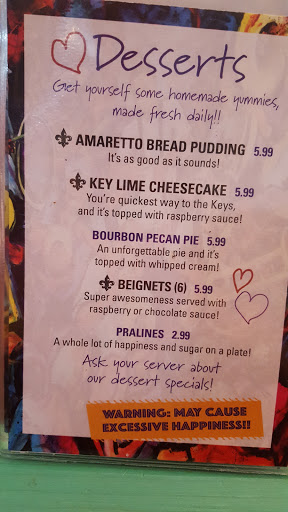 Desserts
Get yourself some homemade yummies,
made fresh daily!!
AMARETTO BREAD PUDDING 5.99
It's as good as it sounds!
KEY LIME CHEESECAKE 5.99
You're quickest way to the Keys,
and it's topped with raspberry sauce!
BOURBON PECAN PIE 5.99
An unforgettable pie and it's
topped with whipped cream!
BEIGNETS (6) 5.99
Super awesomeness served with
raspberry or chocolate sauce!
PRALINES 2.99
A whole lot of happiness and sugar on a plate!
Ask your server about
our dessert specials!
WARNING: MAY CAUSE
EXCESSIVE HAPPINESS!!